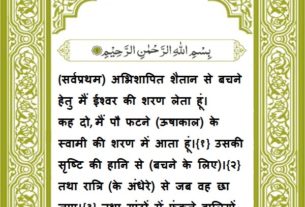 بِسْمِ اللهِ الرَّحْمٰنِ الرَّحِيْمِ
(सर्वप्रथम) अभिशापित शैतान से बचने
हेतु मैं ईश्वर की शरण लेता हूं।
कह दो, मैं पौ फटने (ऊषाकाल) के
स्वामी की शरण में आता हूं।{१} उसकी
सृष्टि की हानि से (बचने के लिए)।{२}
तथा रात्रि (के अंधेरे) से जब वह छा